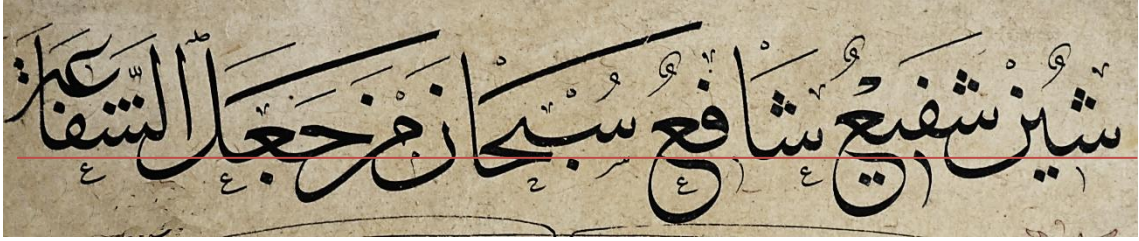 شين شفيع شافع سبحان من جعل الشفاعة